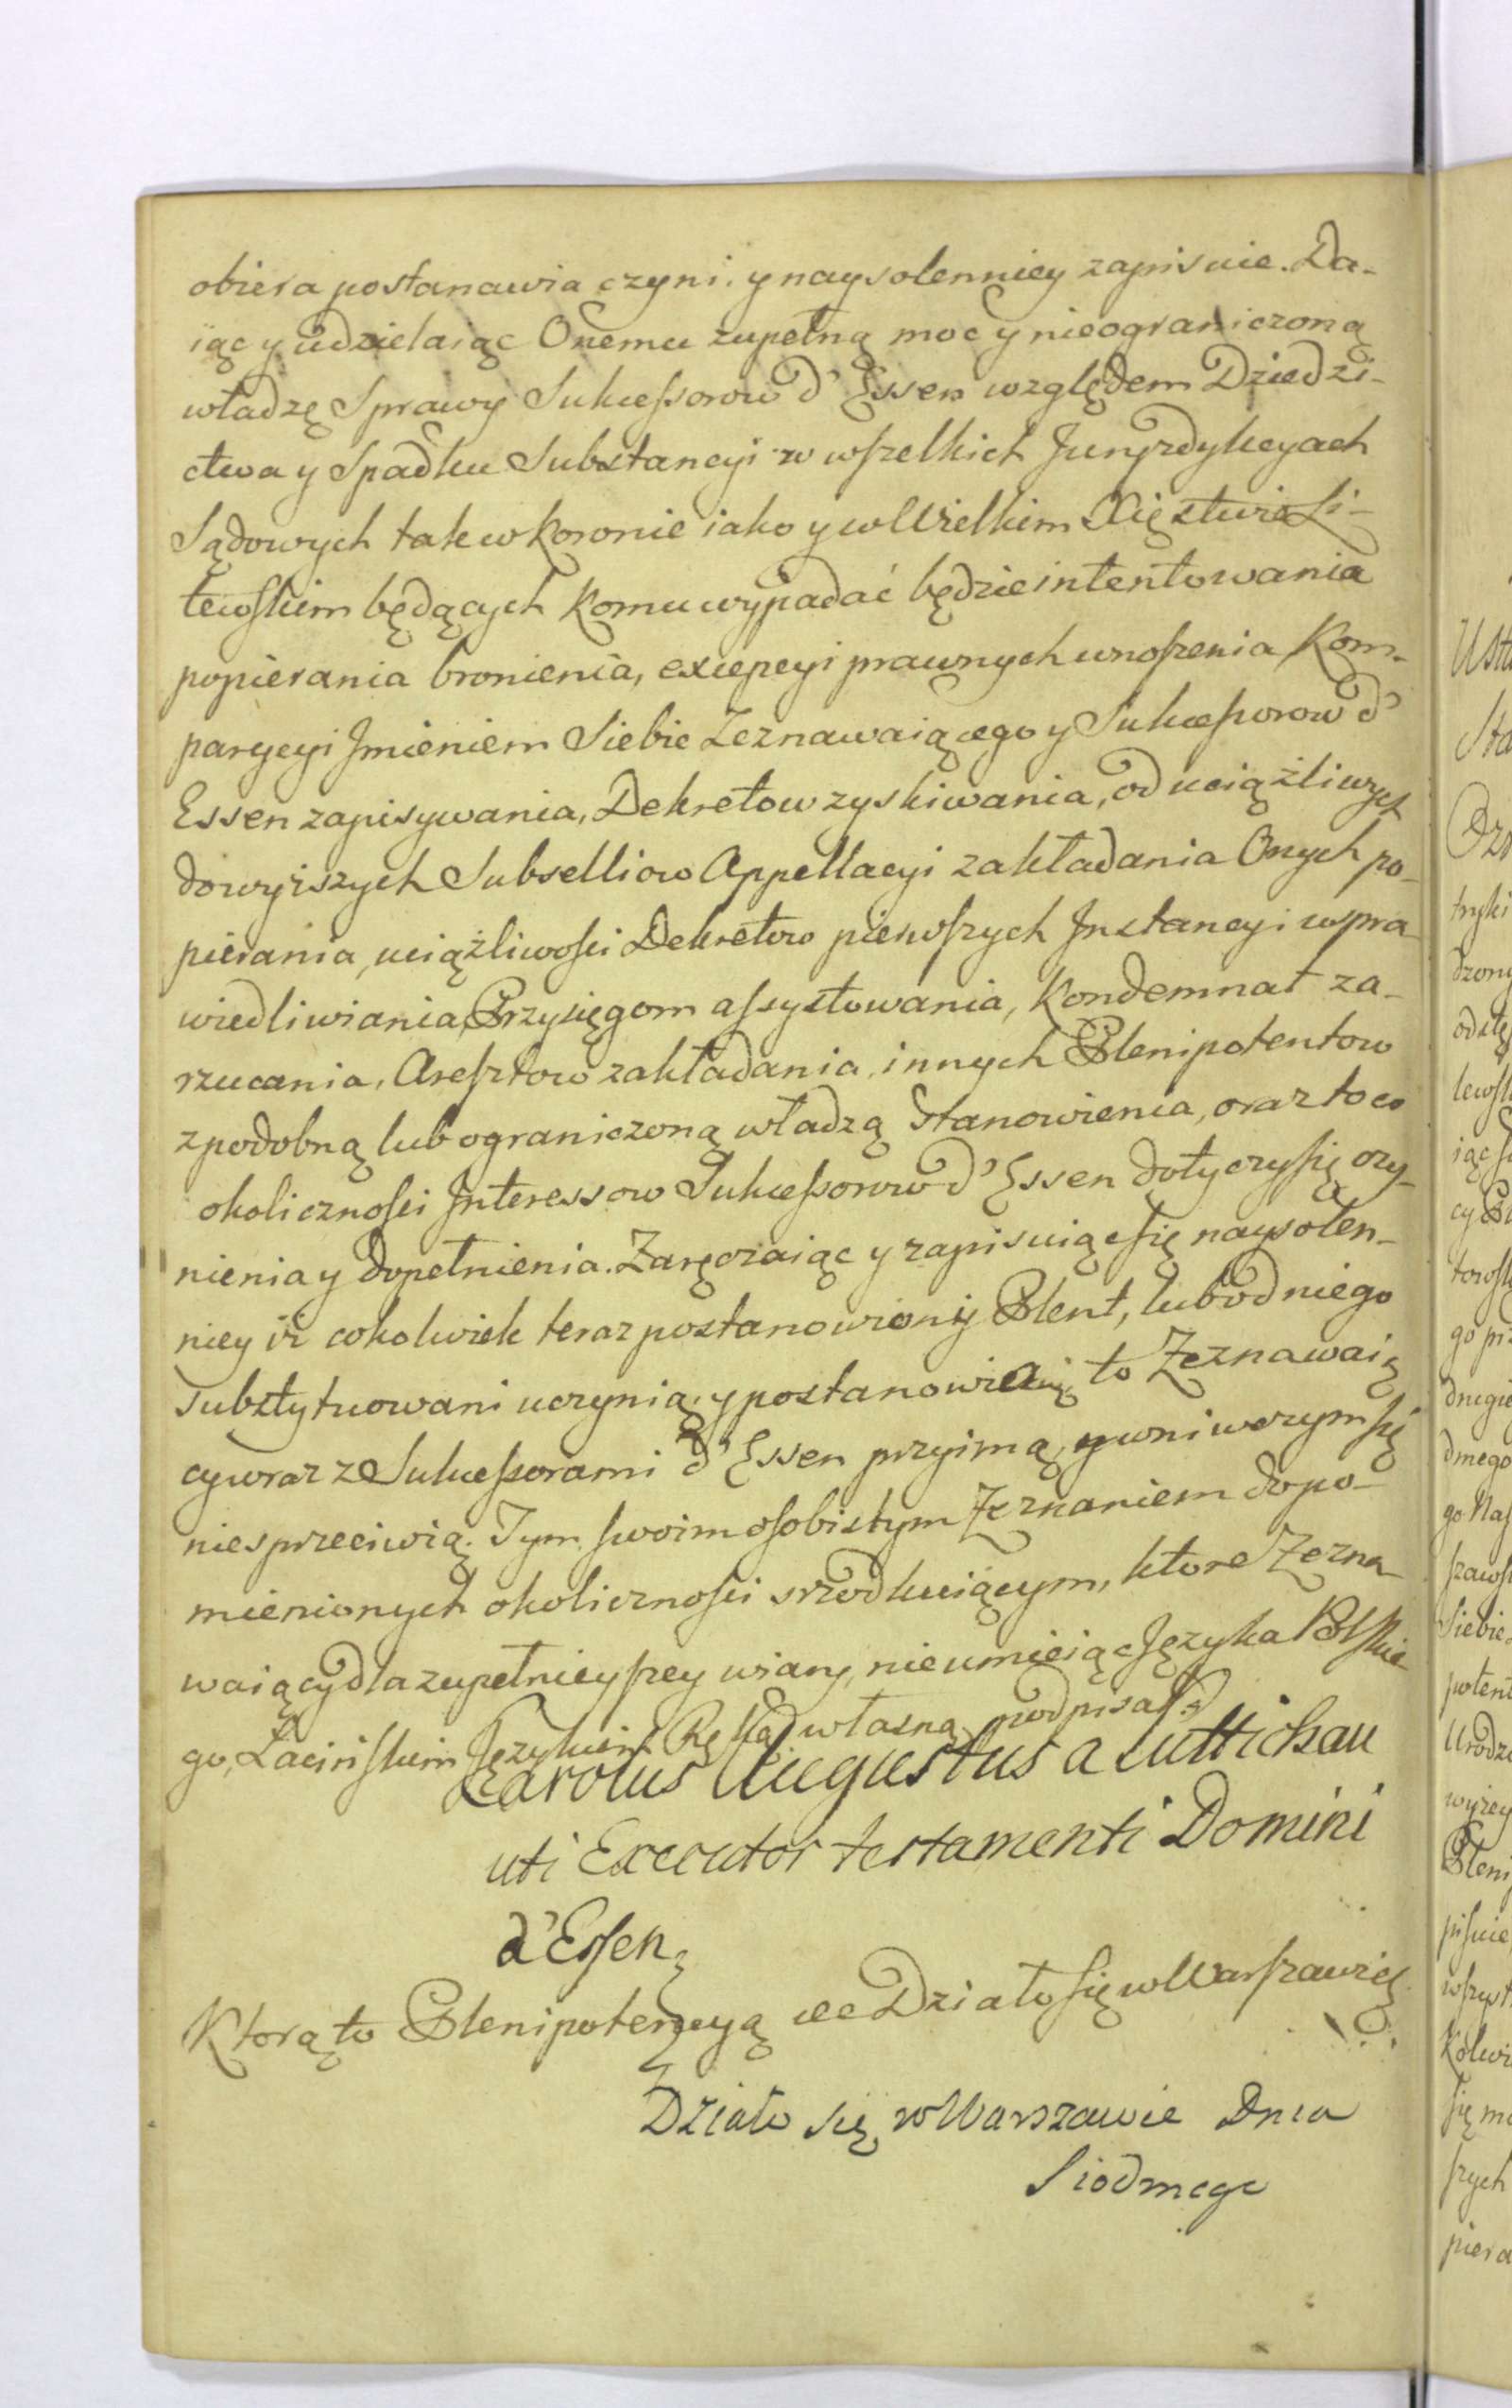 obiera postanawia czyni. y naysolenniey zapisuie. Da-
iąc y udzielaiąc Onemu zupełną moc y nieograniczoną
władzę Sprawy Sukcessorow d'Essen względem Dziedzi-
ctwa y Spadku Substancyi w wszelkich Juryzdykcyach
Sądowych tak w Koronie iako y w Wielkim Xięstwie Li-
tewskim będących komu wypadać będzie intentowania
popierania bronienia, excepcyi prawnych wnoszenia Kom-
parycyi Jmieniem Siebie Zeznawaiącego y Sukcessorow d'
Essen zapisywania, Dekretow zyskiwania, od uciążliwych
do wyższych Subselliow Appellacyi zakładania Onych po-
pierania, uciążliwości Dekretow pierwszych Jnstancyi uspra
wiedliwiania, Przysięgom assystowania, Kondemnat za-
rzucania, Aresztow zakładania, innych Plenipotentow
z podobną lub ograniczoną władzą Stanowienia, oraz to co
okoliczności Jnteressow Sukcessorow d'Essen dotyczy się czy-
nienia y dopełnienia. Zaręczaiąc y zapisuiąc się naysolen-
niey iż cokolwiek teraz postanowiony Plent, lub od niego
substytuowani uczynią, y postanowią to Zeznawaią
cy wraz z Sukcessorami d'Essen przyimą, y w niwczym się
nie sprzeciwią. Tym swoim osobistym Zeznaniem dopo-
mienionych okoliczności srzodkuiącym, ktore Zezna
waiący dla zupełnieyszey wiary, nie umieiąc Języka Polskie
go, Łacińskim Językiem Ręką własną podpisał.
Carolus Augustus a Luttichau
uti Executor testamenti Domini
d'Essen
Ktorą to Plenipotencyą &c Działo się w Warszawie
Działo się w Warszawie Dnia
Siodmego